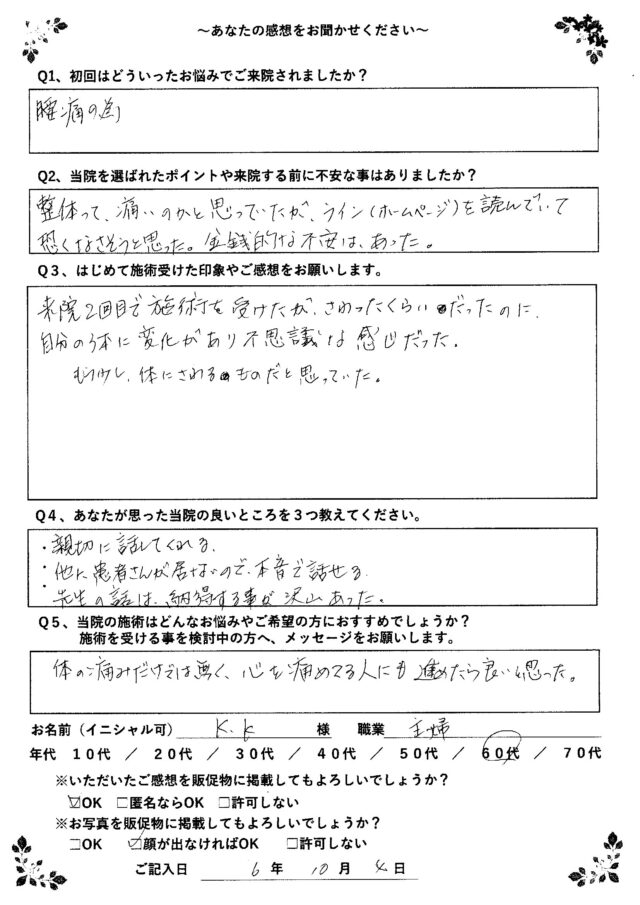 ～あなたの感想をお聞かせください～
Q1、初回はどういったお悩みでご来院されましたか？
腰痛の為
Q2、当院を選ばれたポイントや来院する前に不安な事はありましたか？
整体って、痛いのかと思っていたが、ライン(ホームページ)を読んでいて
恐くなさそうと思った。金銭的な不安は、あった。
Q３、はじめて施術受けた印象やご感想をお願いします。
来院2回目で施術を受けたが、さわったくらいだったのに、
自分の体に変化があり不思議な感じだった。
もう少し、体にさわるものだと思っていた。
Q４、あなたが思った当院の良いところを３つ教えてください。
・親切に話してくれる。
・他に患者さんが居ないので、本音で話せる。
・先生の話は、納得する事が沢山あった。
Q５、当院の施術はどんなお悩みやご希望の方におすすめでしょうか？
施術を受ける事を検討中の方へ、メッセージをお願いします。
体の痛みだけでは無く、心を痛めてる人にも進めたら良いと思った。
お名前（イニシャル可） K.K 様 職業 主婦
年代 １０代 ／ ２０代 ／ ３０代 ／ ４０代 ／ ５０代 ／ ６０代 ／ ７０代
※いただいたご感想を販促物に掲載してもよろしいでしょうか？
☑OK □匿名ならOK □許可しない
※お写真を販促物に掲載してもよろしいでしょうか？
□OK ☑顔が出なければOK □許可しない
ご記入日 6 年 10 月 4 日